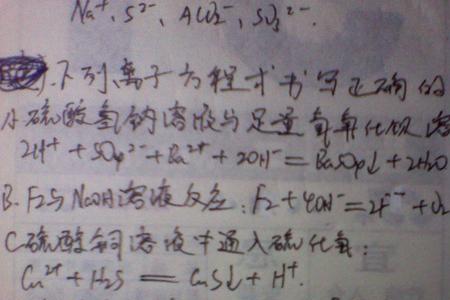 Na⁺、S²⁻、AlO₂⁻、SO₃²⁻.
).下列离子方程式书写正确的
A.硫酸氢钠溶液与足量氢氧化钡溶
2H⁺ + SO₄²⁻ + Ba²⁺ + 2OH⁻ = BaSO₄↓ + 2H₂O
B. F₂与NaOH溶液反应: F₂ + 4OH⁻ = 2F⁻ + O₂
C.硫酸铜溶液中通入硫化氢:
Cu²⁺ + H₂S = CuS↓ + H⁺.